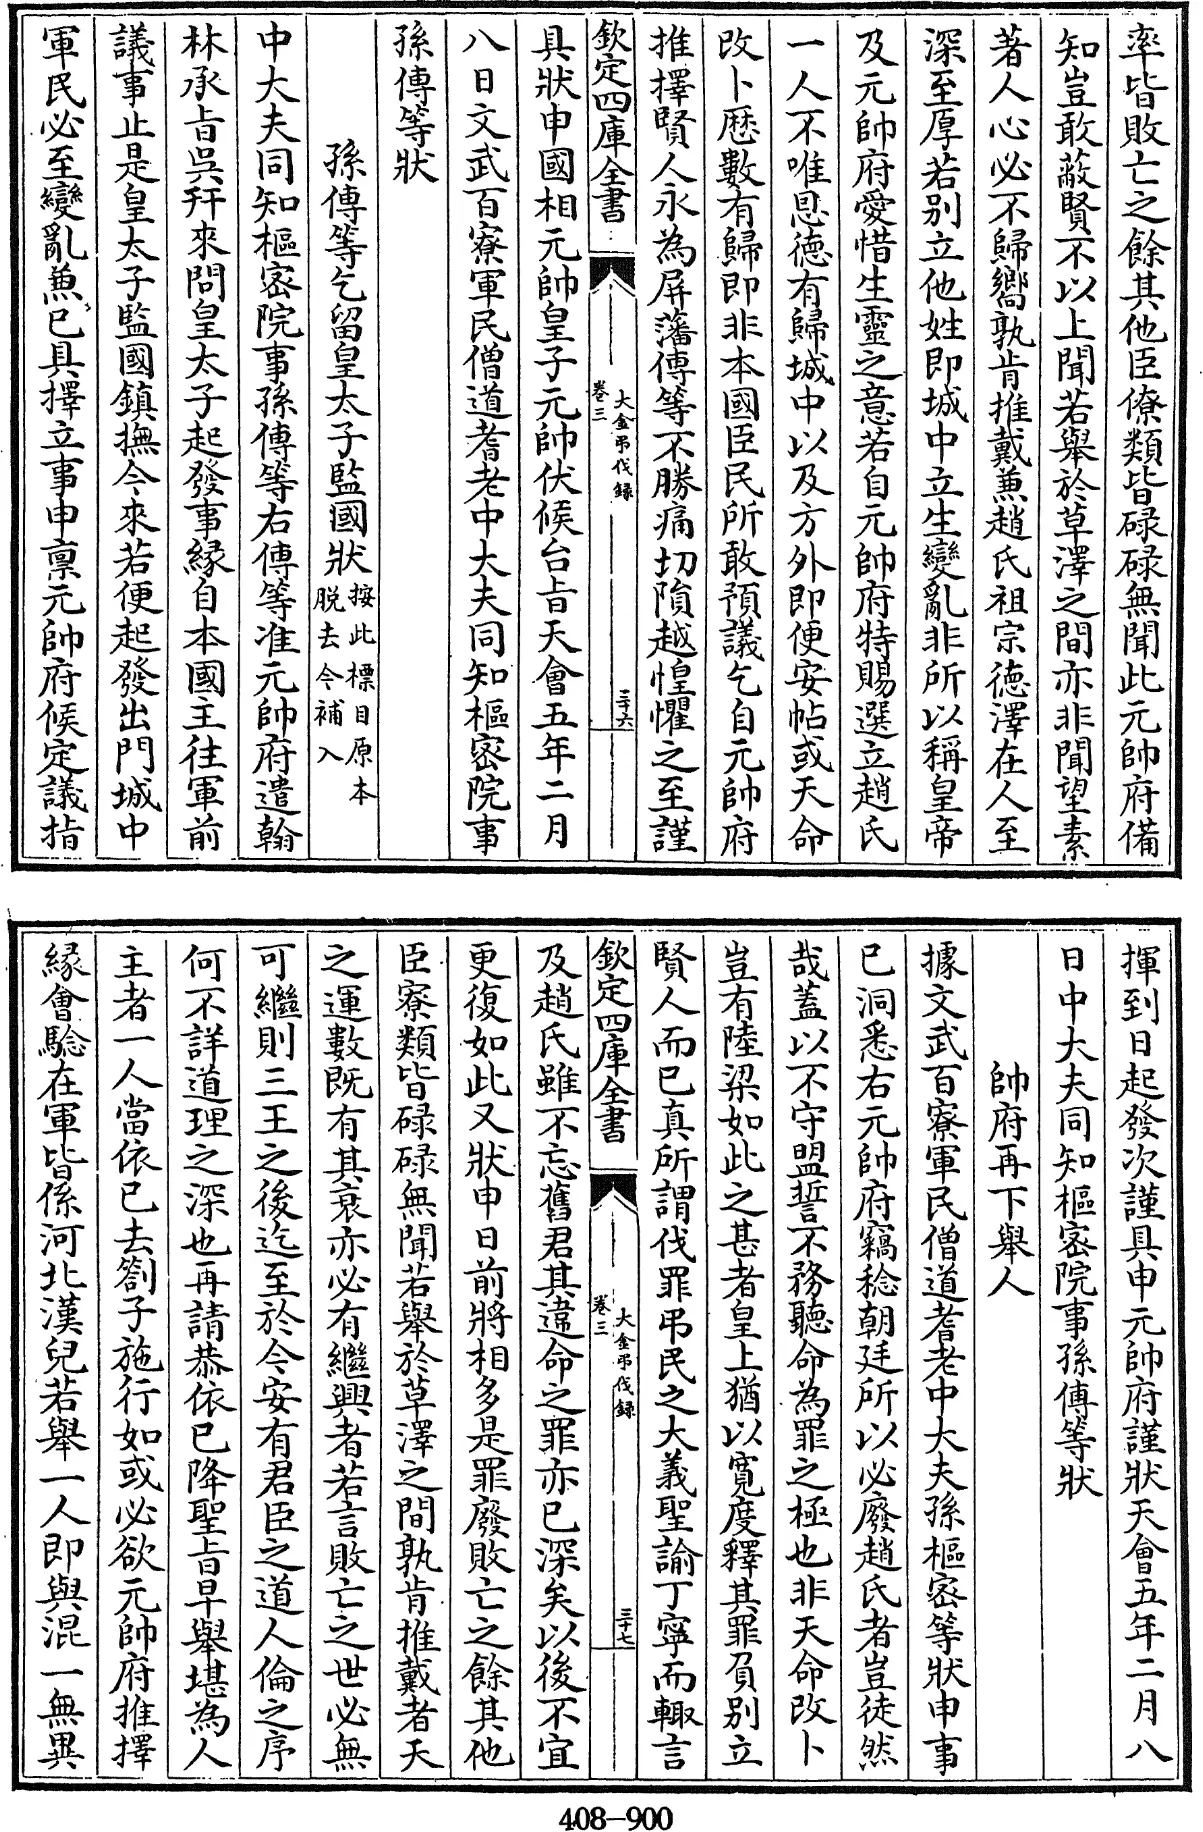 率皆敗亡之餘其他臣僚類皆碌碌無聞此元帥府備
知豈敢蔽賢不以上聞若舉於草澤之間亦非聞望素
著人心必不歸嚮孰肯推戴兼趙氏祖宗德澤在人至
深至厚若别立他姓即城中立生變亂非所以稱皇帝
及元帥府愛惜生靈之意若自元帥府特賜選立趙氏
一人不唯恩德有歸城中以及方外即便安帖或天命
改卜厯數有歸即非本國臣民所敢預議乞自元帥府
推擇賢人永為屏藩傅等不勝痛切隕越惶懼之至謹
欽定四庫全書
大金弔伐録
卷三
三十六
具狀申國相元帥皇子元帥伏候台旨天會五年二月
八日文武百寮軍民僧道耆老中大夫同知樞密院事
孫傅等狀
孫傅等乞留皇太子監國狀按此標目原本
脱去今補入
中大夫同知樞密院事孫傅等右傅等准元帥府遣翰
林承旨吳幵來問皇太子起發事緣自本國主往軍前
議事止是皇太子監國鎮撫今來若便起發出門城中
軍民必至變亂兼已具擇立事申稟元帥府候定議指
揮到日起發次謹具申元帥府謹狀天會五年二月八
日中大夫同知樞密院事孫傅等狀
帥府再下舉人
據文武百寮軍民僧道耆老中大夫孫樞密等狀申事
已洞悉右元帥府竊稔朝廷所以必廢趙氏者豈徒然
哉蓋以不守盟誓不務聽命為罪之極也非天命改卜
豈有陸梁如此之甚者皇上猶以寛度釋其罪負别立
賢人而已真所謂伐罪弔民之大義聖諭丁寧而輙言
欽定四庫全書
大金弔伐録
卷三
三十七
及趙氏雖不忘舊君其違命之罪亦已深矣以後不宜
更復如此又狀申日前將相多是罪廢敗亡之餘其他
臣寮類皆碌碌無聞若舉於草澤之間孰肯推戴者天
之運數既有其衰亦必有繼興者若言敗亡之世必無
可繼則三王之後迄至於今安有君臣之道人倫之序
何不詳道理之深也再請恭依已降聖旨早舉堪為人
主者一人當依已去劄子施行如或必欲元帥府推擇
緣會驗在軍皆係河北漢兒若舉一人即與混一無異
408-900